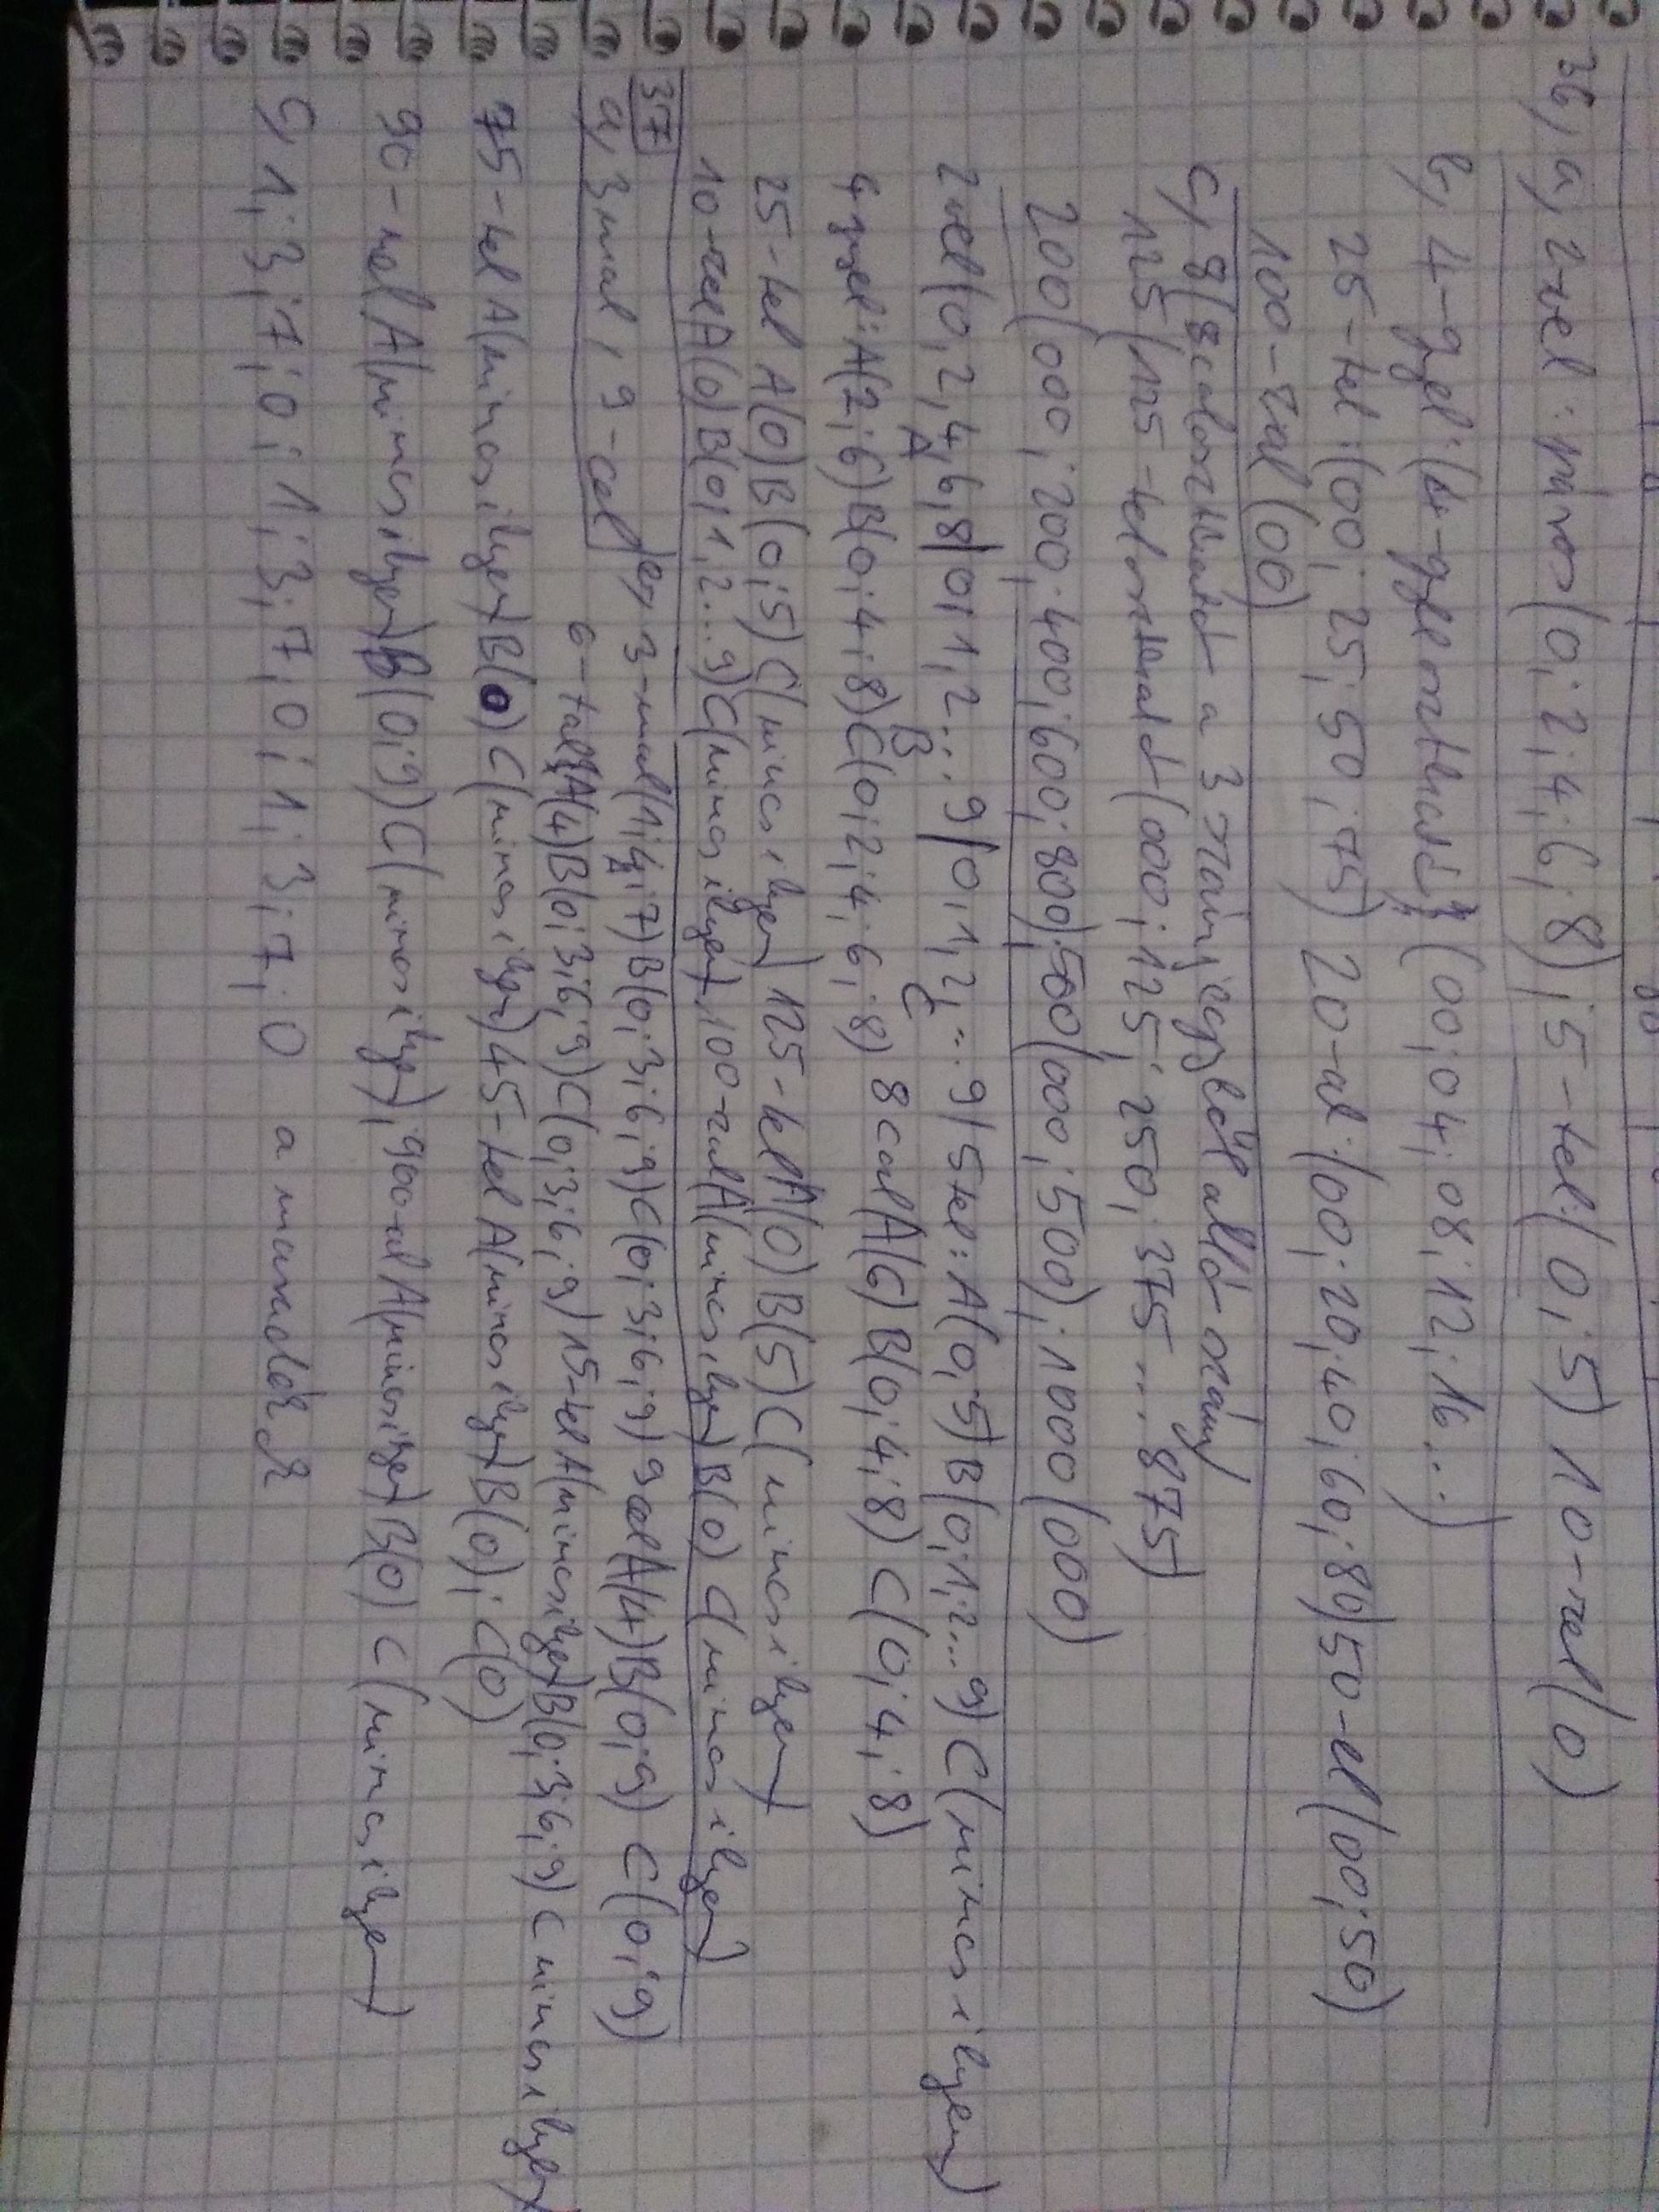 36, a, 2-vel: páros (0; 2; 4; 6; 8); 5-tel: (0; 5) 10-zel (0)
b, 4-gyel: (4-gyel osztható) (00; 04; 08; 12; 16...)
25-tel: (00; 25; 50; 75) 20-al: (00; 20; 40; 60; 80) 50-el (00; 50)
100-zal (00)
c, 8 (8cal osztható a 3 számjegyből álló szám)
125 (125-tel osztható (000; 125; 250; 375... 875)
200 (000; 200; 400; 600; 800); 500 (000; 500); 1000 (000)
2vel (0, 2, 4, 6, 8 | 0, 1, 2... 9 | 0, 1, 2, ... 9 | 5tel: A (0; 5) B (0, 1, 2... 9) C (nincs ilyen)
A B C
4 gyel: A (2; 6) B (0; 4; 8) C (0; 2; 4; 6; 8) 8cal A (6) B (0; 4; 8) C (0; 4; 8)
25-tel A (0) B (0; 5) C (nincs ilyen) 125-tel A (0) B (5) C (nincs ilyen)
10-zel A (0) B (0, 1, 2... 9) C (nincs ilyen), 100-zal A (nincs ilyen) B (0) C (nincs ilyen)
357
a, 3mal, 9-cel b, 3-mal (1; 4; 7) B (0; 3; 6; 9) C (0; 3; 6; 9) 9cel A (4) B (0; 9) C (0; 9)
6-tal A (4) B (0; 3; 6; 9) C (0; 3; 6; 9) 15-tel A (nincs ilyen) B (0; 3; 6; 9) C nincs ilyen
75-tel A (nincs ilyen) B (0) C (nincs ilyen) 45-tel A (nincs ilyen) B (0); C (0)
90-nel A (nincs ilyen) B (0; 9) C (nincs ilyen), 900-al A (nincs ilyen) B (0) C (nincs ilyen)
c, 1; 3; 7; 0; 1; 3; 7; 0; 1; 3; 7; 0 a maradék